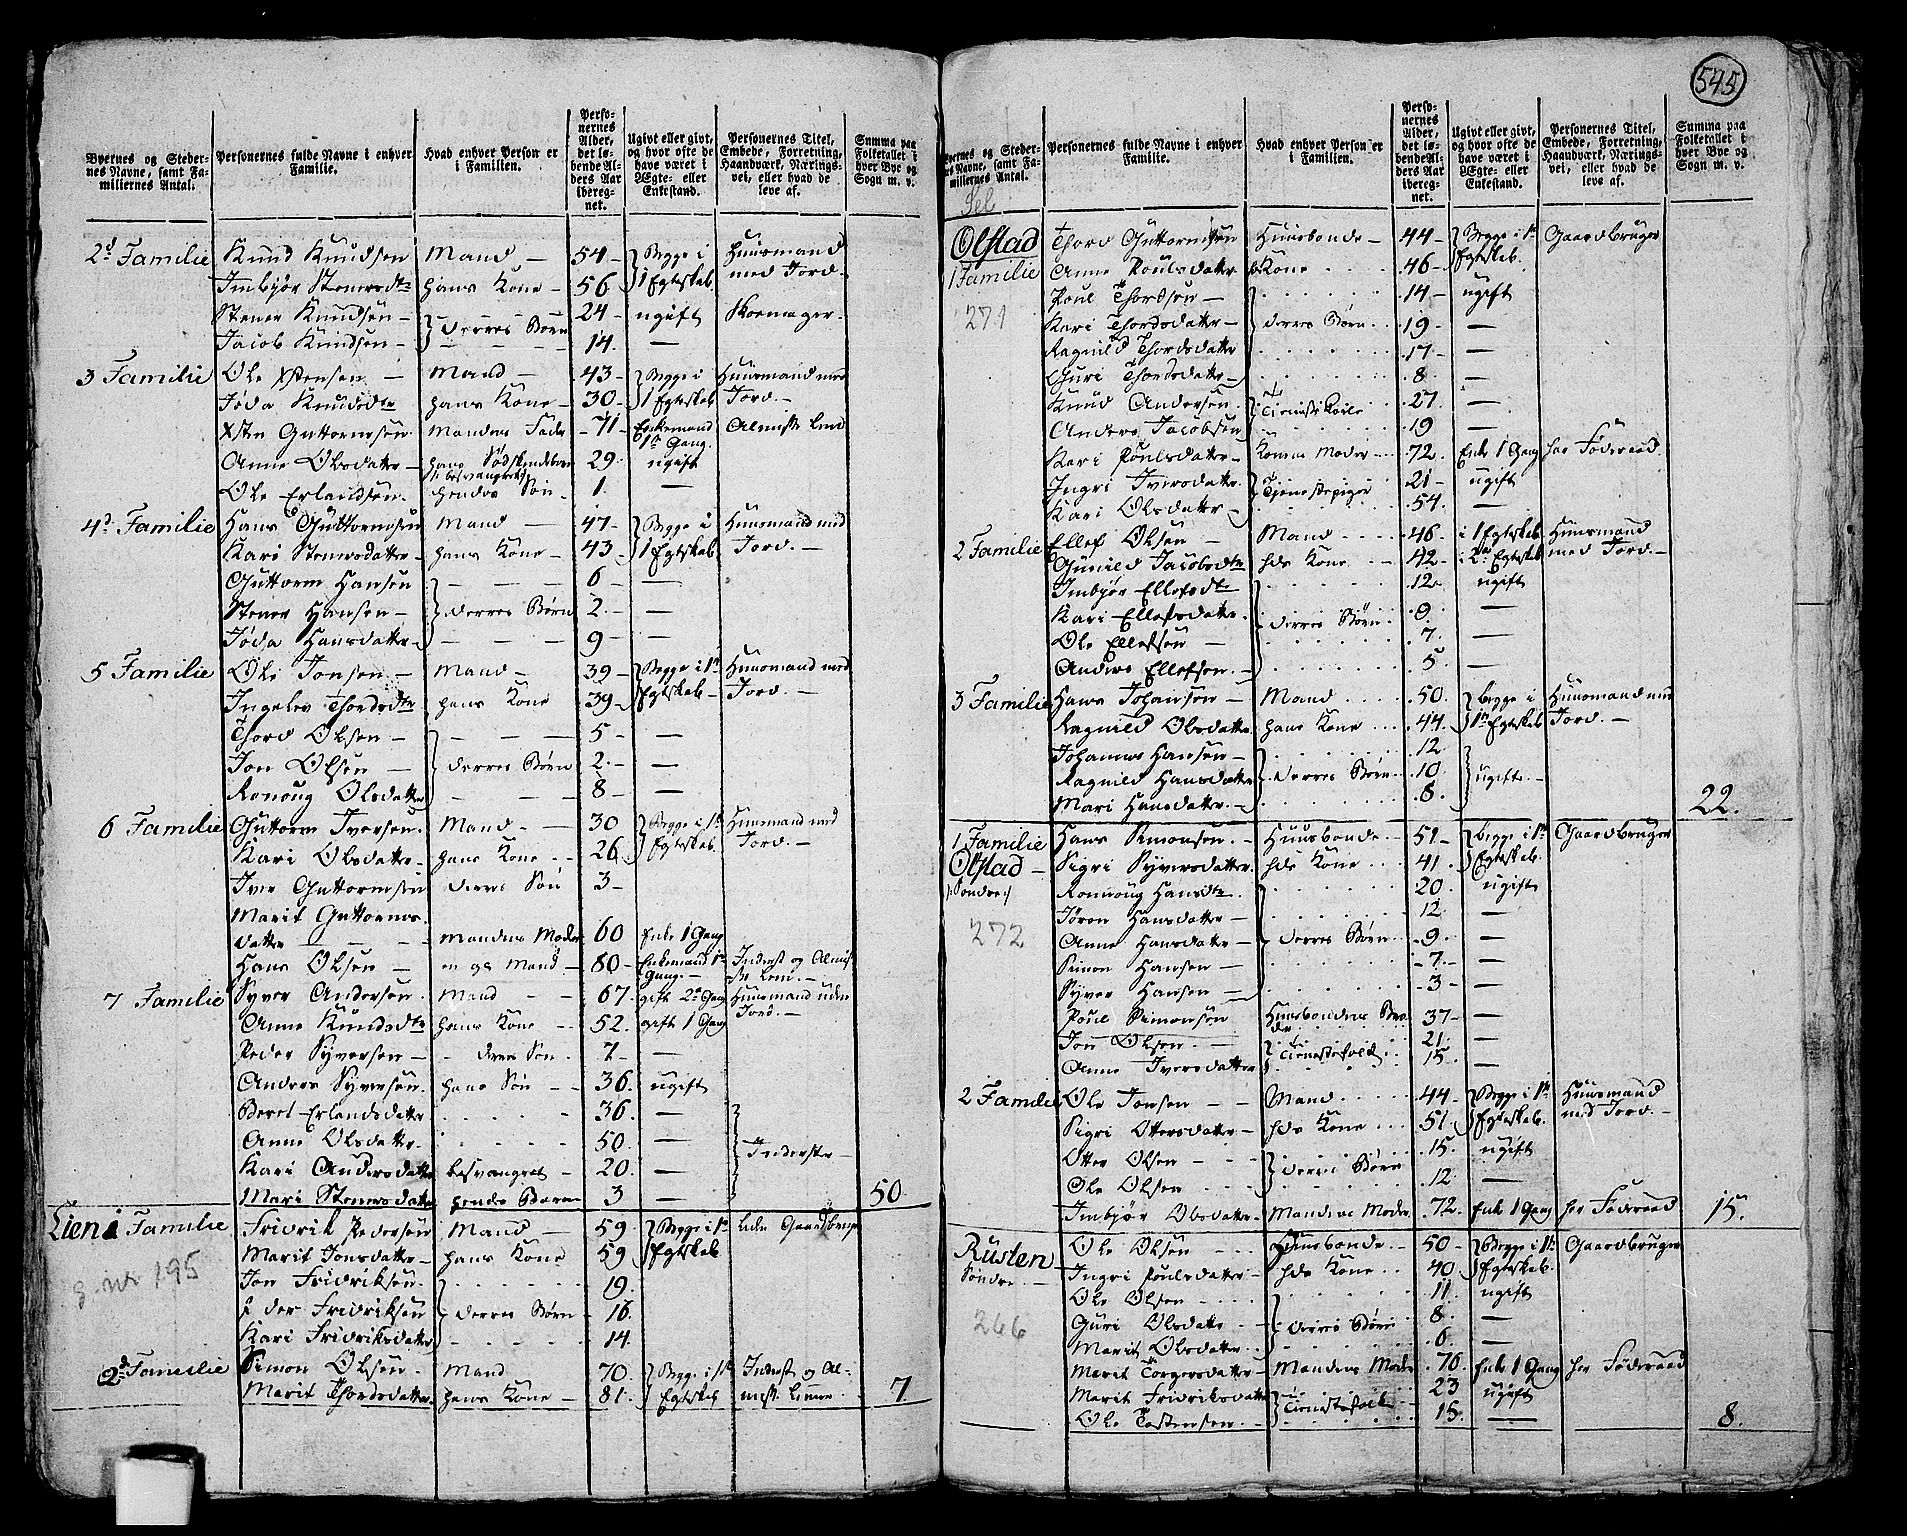 545
Byernes og Stedernes Navne, samt Familiernes Antal.
Personernes fulde Navne i enhver Familie.
Hvad enhver Person er i Familien.
Personernes Alder, det løbende Alders Aar iberegnet.
Ugivt eller givt, og hvor ofte de have været i Ægte- eller Enkestand.
Personernes Titel, Embede, Forretning, Haandværk, Næringsvei, eller hvad de leve af.
Summa paa Folketallet i hver Bye og Sogn m. v.
2d Familie Knud Knudsen Mand — 54 — Begge i Huusmand
Imbjør Stenersdtr hans Kone — 56 1 Egteskab. med Jord.
Stener Knudsen — 24 — ugift Skomager.
Jacob Knudsen — derres Børn 14. —
3 Familie Ole Xstensen — Mand — 43 — Begge i Huusmand med
Jøda Knudsdtr hans Kone — 30 — 1 Egteskab Jord. —
Xsten Guttormsen Mandens Fader — 71 — Enkemand 1e Gang. Almisse Lem
Anne Olsdatter — 29. ugift
Ole Erlandsen. hendes Søn — 1. —
4d Familie Hans Guttormsen Mand — 47 — Begge i Huusmand med
Kari Stenersdatter — hans Kone — 43 1 Egteskab. Jord. —
Guttorm Hansen 6 — —
Stener Hansen — derres Børn 2. — —
Jøda Hansdatter — 9 — —
5 Familie Ole Jonsen — Mand — 39 — Begge i 1te Huusmand med
Ingelev Thordsdtr hans Kone 39 — Egteskab — Jord. —
Thord Olsen — 5 — —
Jon Olsen — derres Børn 2. — —
Ronoug Olsdatter 8 — —
6 Familie Guttorm Iversen. Mand — 30 Begge i 1te Huusmand med
Kari Olsdatter — hans Kone 26. Egteskab. Jord. —
Iver Guttormsen derres Søn 3 —
Marit Guttorms-
datter — Mandens Moder 60 Enke 1 Gang
Hans Olsen — en gl Mand — 80 — Enkemand 1e Gang. — Inderst og Almisse Lem. —
7 Familie Syver Andersen. Mand — 67. gift 2e Gang Huusmand uden
Anne Knudsdtr hans Kone 52. gift 1 Gang Jord. —
Peder Syversen — deres Søn. 7 — —
Anders Syversen. hans Søn — 36. ugift
Beret Erlandsdatter 36. —
Anne Olsdatter. 50. — Inderster —
Kari Andersdatter besvangret — 20. —
Mari Stenersdatter hendes Barn 3 — 50.
Lien 1 Familie Fridrik Pedersen Mand — 59 Begge i 1te
Marit Jonsdatter — hans Kone 59 Egteskab
g. nr 195
Jon Fridriksen. 19.
Peder Fridriksen derres Børn — 16.
Kari Fridriksdatter 14.
2d Familie Simon Olsen. Mand 70. Begge i 1te Inderst og Al-
Marit Thordsdatter. hans Kone 81. Egteskab misse Lemer. 7
Byernes og Stedernes Navne, samt Familiernes Antal.
Personernes fulde Navne i enhver Familie.
Hvad enhver Person er i Familien.
Personernes Alder, det løbende Alders Aar iberegnet.
Ugivt eller givt, og hvor ofte de have været i Ægte- eller Enkestand.
Personernes Titel, Embede, Forretning, Haandværk, Næringsvei, eller hvad de leve af.
Summa paa Folketallet i hver Bye og Sogn m. v.
Sel
Olstad Thord Guttormsen Huusbonde — 44 — Begge i 1te Gaardbruger
1 Familie Anne Poulsdatter Kone 46 — Egteskab.
Poul Thordsen — 14 — ugift
271
Kari Thordsdatter — derres Børn 19 — —
Ragnild Thordsdatter 17 — —
Guri Thordsdatter 8. —
Knud Andersen Tieniste 27. —
Anders Jacobsen 19 —
Kari Poulsdatter — Konens Moder 72. Enke 1 Gang har Føderaad
Ingri Iversdatter. Tjenestepiger 21 — ugift
Kari Olsdatter — 54. —
2 Familie Ellef Olsen — Mand 46. i 1 Egteskab Huusmand
Gunild Jacobsdtr hds Kone 42 i 2d Egteskab med Jord. —
Imbjør Ellefsdtr 12. ugift
Kari Ellefsdatter. derres Børn 9. —
Ole Ellefsen — 7. —
Anders Ellefsen. — 5. —
3 Familie Hans Johansen — Mand 50. Begge i Huusmand med
Ragnild Olsdatter hans Kone 44. 1te Egteskab. Jord. —
Johannes Hansen — 12.
Ragnild Hansdatter derres Børn 10. ugifte. —
Mari Hansdatter. — 8. 22.
1 Familie Hans Simonsen. — Huusbonde 51 — Begge i 1te Gaardbruger
Olstad — Sigri Syversdatter. hds Kone 41. Egteskab.
/:Søndre:/ Ronnoug Hansdtr 20. ugift
Jøren Hansdatter — 12. —
272
Anne Hansdatter — derres Børn 9 — —
Simon Hansen — 7. — —
Syver Hansen — 3 — —
Poul Simonsen Huusbondens Broder 37 — —
Jon Olsen — Tienestefolk 21. —
Anne Iversdatter 15. —
2 Familie Ole Jonsen — Mand 44 — Begge i 1te Huusmand
Sigri Ottersdatter — hds Kone 51. Egteskab. med Jord. —
Otter Olsen — derres Børn 15. ugift
Ole Olsen — 12. —
Imbjør Olsdatter. Mandens Moder 72. Enke 1 Gang har Føderaad 15.
Rusten Ole Olsen Huusbonde 50 — Begge i 1te Gaardbruger
Søndre. — Ingri Poulsdatter — hds Kone 40 — Egteskab.
Ole Olsen 11. ugift
266
Guri Olsdatter derres Børn 8. —
Marit Olsdatter. 6. —
Marit Torgersdatter Mandens Moder 76. Enke 1 Gang har Føderaad
Marit Fridriksdatter Tienestefolk 23 ugift
Ole Tostensen — 15. — 8.